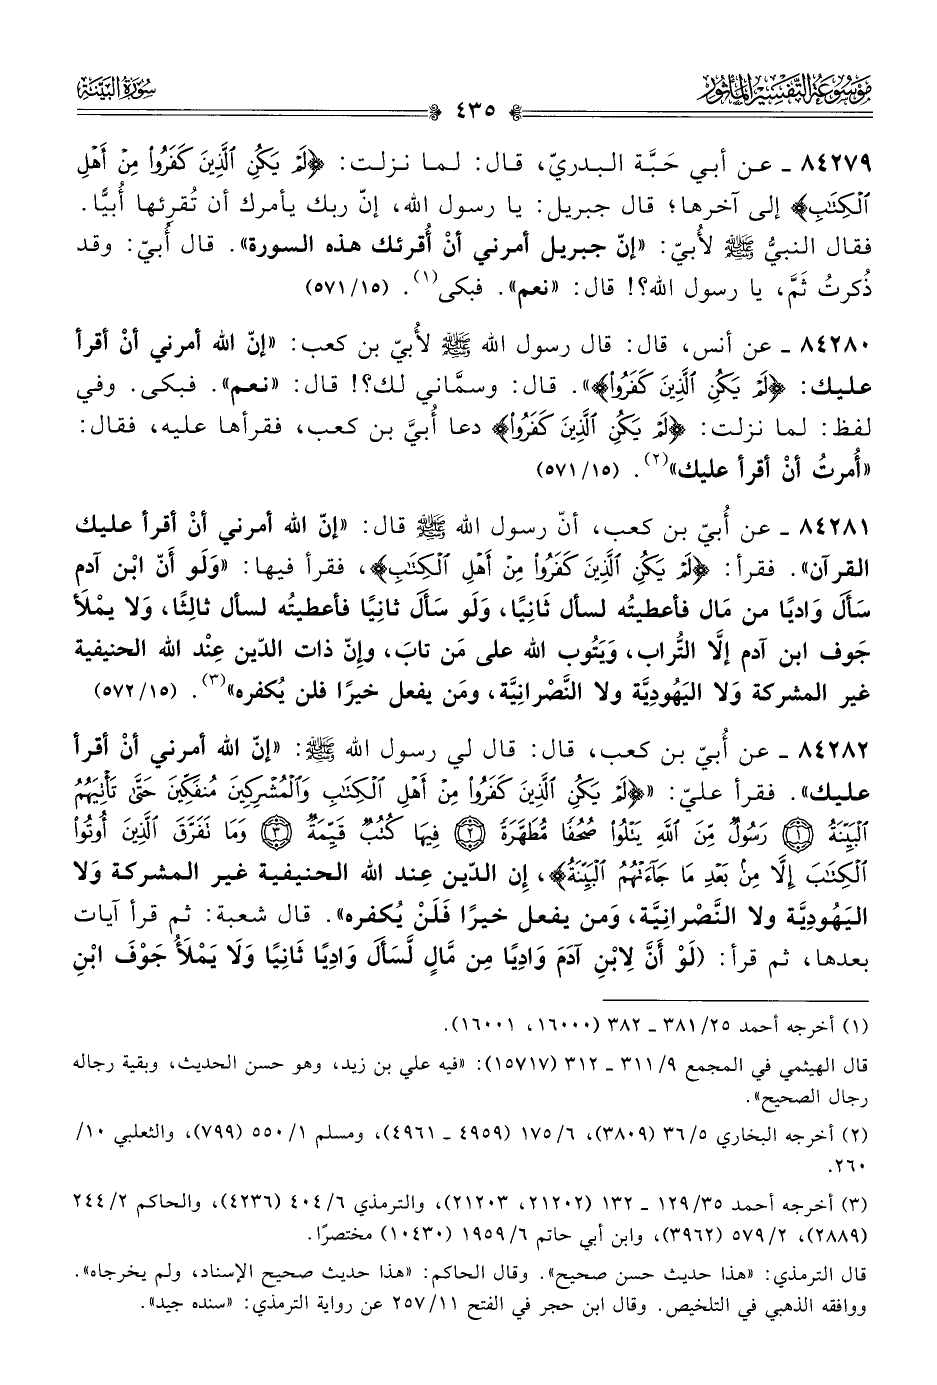 مَوْسُوعَةُ التَّفْسِيرِ المَأْثُورِ
سُورَةُ البَيِّنَةِ
٤٣٥
٨٤٢٧٩ ـ عـن أبـي حَـبَّـة الـبـدريّ، قـال: لـمـا نـزلـت: ﴿لَمْ يَكُنِ ٱلَّذِينَ كَفَرُوا۟ مِنْ أَهْلِ
ٱلْكِتَٰبِ﴾ إلى آخرها؛ قال جبريل: يا رسول الله، إنّ ربك يأمرك أن تُقرِئها أُبيًّا.
فقال النبيُّ ﷺ لأُبيّ: «إنّ جبريل أمرني أنْ أُقرئك هذه السورة». قال أُبيّ: وقد
ذُكرتُ ثَمَّ، يا رسول الله؟! قال: «نعم». فبكى(١). (٥٧١/١٥)
٨٤٢٨٠ ـ عن أنس، قال: قال رسول الله ﷺ لأُبيّ بن كعب: «إنّ الله أمرني أنْ أقرأ
عليك: ﴿لَمْ يَكُنِ ٱلَّذِينَ كَفَرُوا۟﴾». قال: وسمَّاني لك؟! قال: «نعم». فبكى. وفي
لفظ: لما نزلت: ﴿لَمْ يَكُنِ ٱلَّذِينَ كَفَرُوا۟﴾ دعا أُبيَّ بن كعب، فقرأها عليه، فقال:
«أُمرتُ أنْ أقرأ عليك»(٢). (٥٧١/١٥)
٨٤٢٨١ ـ عن أُبيّ بن كعب، أنّ رسول الله ﷺ قال: «إنّ الله أمرني أنْ أقرأ عليك
القرآن». فقرأ: ﴿لَمْ يَكُنِ ٱلَّذِينَ كَفَرُوا۟ مِنْ أَهْلِ ٱلْكِتَٰبِ﴾، فقرأ فيها: «وَلَو أنّ ابْن آدم
سَأَلَ وَاديًا من مَال فأعطيتُه لسأل ثَانِيًا، وَلَو سَأَلَ ثانيًا فأعطيتُه لسأل ثالثًا، وَلا يمْلَأ
جَوف ابن آدم إلَّا التُّراب، وَيَتُوب الله على مَن تابَ، وإنّ ذات الدّين عِنْد الله الحنيفية
غير المشركة وَلا اليَهُوديَّة ولا النَّصْرانِيَّة، ومَن يفعل خيرًا فلن يُكفره»(٣). (٥٧٢/١٥)
٨٤٢٨٢ ـ عن أُبيّ بن كعب، قال: قال لي رسول الله ﷺ: «إنّ الله أمرني أنْ أقرأ
عليك». فقرأ عليّ: «﴿لَمْ يَكُنِ ٱلَّذِينَ كَفَرُوا۟ مِنْ أَهْلِ ٱلْكِتَٰبِ وَٱلْمُشْرِكِينَ مُنفَكِّينَ حَتَّىٰ تَأْتِيَهُمُ
ٱلْبَيِّنَةُ ۝١ رَسُولٌ مِّنَ ٱللَّهِ يَتْلُوا۟ صُحُفًا مُّطَهَّرَةً ۝٢ فِيهَا كُتُبٌ قَيِّمَةٌ ۝٣ وَمَا تَفَرَّقَ ٱلَّذِينَ أُوتُوا۟
ٱلْكِتَٰبَ إِلَّا مِنۢ بَعْدِ مَا جَآءَتْهُمُ ٱلْبَيِّنَةُ﴾، إن الدّين عِند الله الحنيفية غير المشركة وَلا
اليَهُوديَّة ولا النَّصْرانِيَّة، ومَن يفعل خيرًا فَلَنْ يُكفره». قال شعبة: ثم قرأ آيات
بعدها، ثم قرأ: (لَوْ أَنَّ لِابْنِ آدَمَ وَادِيًا مِن مَّالٍ لَّسَأَلَ وَادِيًا ثَانِيًا وَلَا يَمْلَأُ جَوْفَ ابْنِ
(١) أخرجه أحمد ٢٥/ ٣٨١ ـ ٣٨٢ (١٦٠٠٠، ١٦٠٠١).
قال الهيثمي في المجمع ٩/ ٣١١ ـ ٣١٢ (١٥٧١٧): «فيه علي بن زيد، وهو حسن الحديث، وبقية رجاله
رجال الصحيح».
(٢) أخرجه البخاري ٥/ ٣٦ (٣٨٠٩)، ٦/ ١٧٥ (٤٩٥٩ ـ ٤٩٦١)، ومسلم ١/ ٥٥٠ (٧٩٩)، والثعلبي ١٠/
٢٦٠.
(٣) أخرجه أحمد ٣٥/ ١٢٩ ـ ١٣٢ (٢١٢٠٢، ٢١٢٠٣)، والترمذي ٦/ ٤٠٤ (٤٢٣٦)، والحاكم ٢/ ٢٤٤
(٢٨٨٩)، ٢/ ٥٧٩ (٣٩٦٢)، وابن أبي حاتم ٦/ ١٩٥٩ (١٠٤٣٠) مختصرًا.
قال الترمذي: «هذا حديث حسن صحيح». وقال الحاكم: «هذا حديث صحيح الإسناد، ولم يخرجاه».
ووافقه الذهبي في التلخيص. وقال ابن حجر في الفتح ١١/ ٢٥٧ عن رواية الترمذي: «سنده جيد».